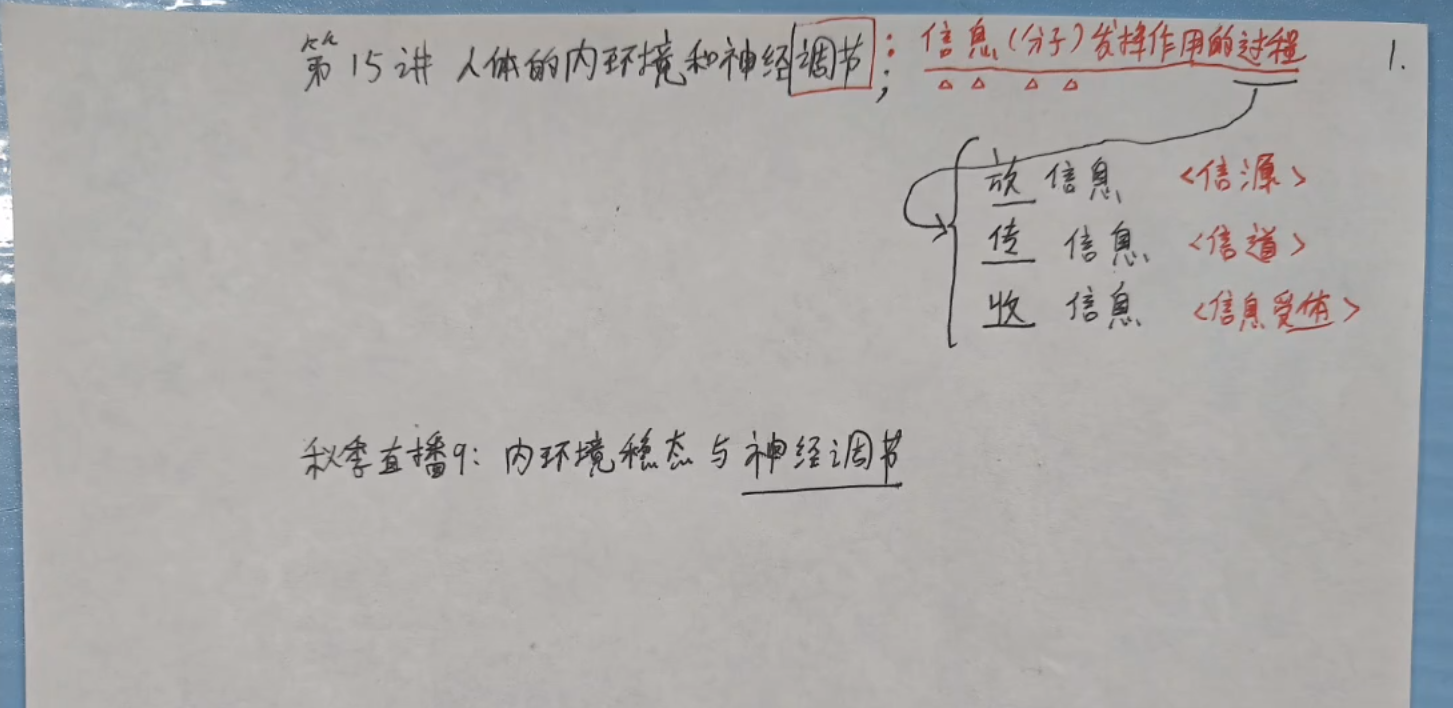 第15讲 人体的内环境和神经调节; : 信息(分子)发挥作用的过程 1.
放信息 <信源>
传信息 <信道>
收信息 <信息受体>
秋季直播9: 内环境稳态与神经调节